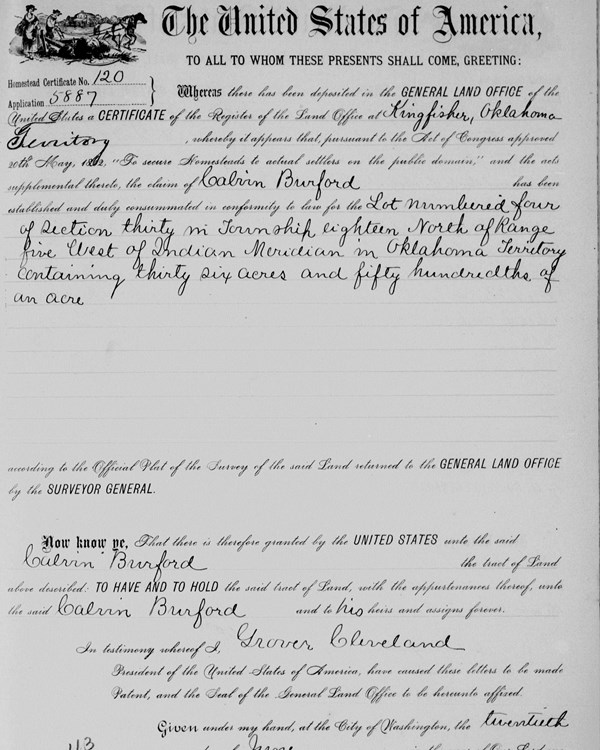 The United States of America,
TO ALL TO WHOM THESE PRESENTS SHALL COME, GREETING:
Homestead Certificate No. 120
Application 5887
Whereas there has been deposited in the GENERAL LAND OFFICE of the
United States a CERTIFICATE of the Register of the Land Office at Kingfisher, Oklahoma
Territory, whereby it appears that, pursuant to the Act of Congress approved
20th May, 1862, "To secure Homesteads to actual settlers on the public domain," and the acts
supplemental thereto, the claim of Calvin Burford has been
established and duly consummated in conformity to law for the Lot numbered four
of Section thirty in Township eighteen North of Range
five West of Indian Meridian in Oklahoma Territory
containing thirty six acres and fifty hundredths of
an acre
according to the Official Plat of the Survey of the said Land returned to the GENERAL LAND OFFICE
by the SURVEYOR GENERAL.
Now know ye, That there is therefore granted by the UNITED STATES unto the said
Calvin Burford the tract of Land
above described: TO HAVE AND TO HOLD the said tract of Land, with the appurtenances thereof, unto
the said Calvin Burford and to his heirs and assigns forever.
In testimony whereof I, Grover Cleveland
President of the United States of America, have caused these letters to be made
Patent, and the Seal of the General Land Office to be hereunto affixed.
Given under my hand, at the City of Washington, the twentieth